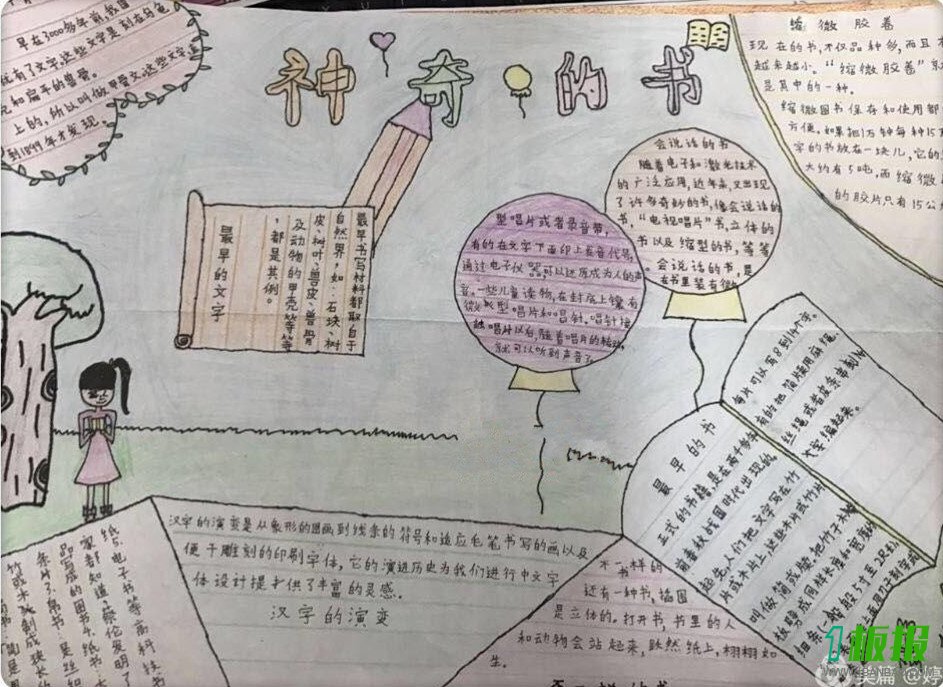 神奇的书
早在3000多年前,我国
就有了文字,这些文字是刻在乌龟
壳和扁平的兽骨
上的,所以叫做甲骨文,这些文字直
到1899年才发现。
缩微胶卷
现在的书,不仅品种多,而且
越来越小。“缩微胶卷”
是其中的一种。
缩微图书保存和使用都
方便。如果把1万钟每种15
字的书放在一块儿,它的
大约有5吨,而缩微
的胶片只有15公
会说话的书
随着电子和激光技术
的广泛应用,近年来,又出现
了许多奇妙的书,像会说话的
书,“电视唱片”书,立体的
书以及缩型的书,等等
。会说话的书,是
在书里装有微
型唱片或者录音带,
有的在文字下面印上发音代号,
通过电子仪器可以还原成为人的声
音。一些儿童读物,在封底上镶有
微型唱片和唱针。唱针接
触唱片以后,随着唱片的转动,
就可以听到声音了
最早书写材料都取自于
自然界,如石块、树
皮、树叶、兽皮、兽骨
及动物的甲壳等等
,都是其例。
最早的文字
每片可以写8到14个字。
有的把简牍用麻绳、
丝绳或者皮条串
最早的书
正式的书籍,是在两千多年
前春秋战国时代出现的
起先,人们把文字写在竹
片或木片上,这些木片或竹片
叫做简或牍。把竹子木
板劈成同样长度和宽度的
汉字的演变是从象形的图画到线条的符号和适应毛笔书写的画以及
便于雕刻的印刷字体,它的演进历史为我们进行中文字
体设计提供了丰富的灵感.
汉字的演变
不一样的书
还有一种书,插图
是立体的。打开书,书里的人
和动物会站起来,跃然纸上,栩栩如
生。
纸、5、电子书等高科技
家都知道,蔡伦发明了
1板报
美篇 @婷